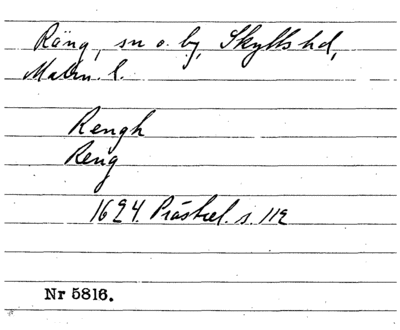 Räng, sn o. by, Skytts hd,
Malm. l.
Rengh
Reng
1624. Prästrel. s. 112
Nr 5816.